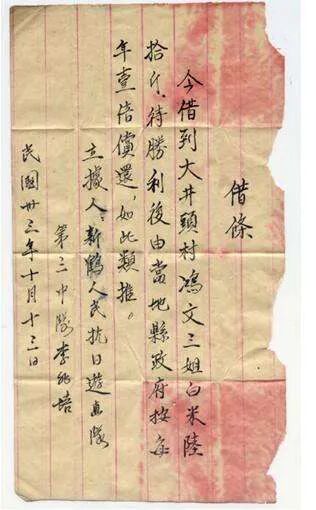 借條
今借到大井頭村馮文三姐白米陸
拾斤、待勝利後由當地縣政府按每
年壹倍償還，如此類推。
立據人：新鶴人民抗日遊直隊
第三中隊李兆培
民國卅三年十月十三日